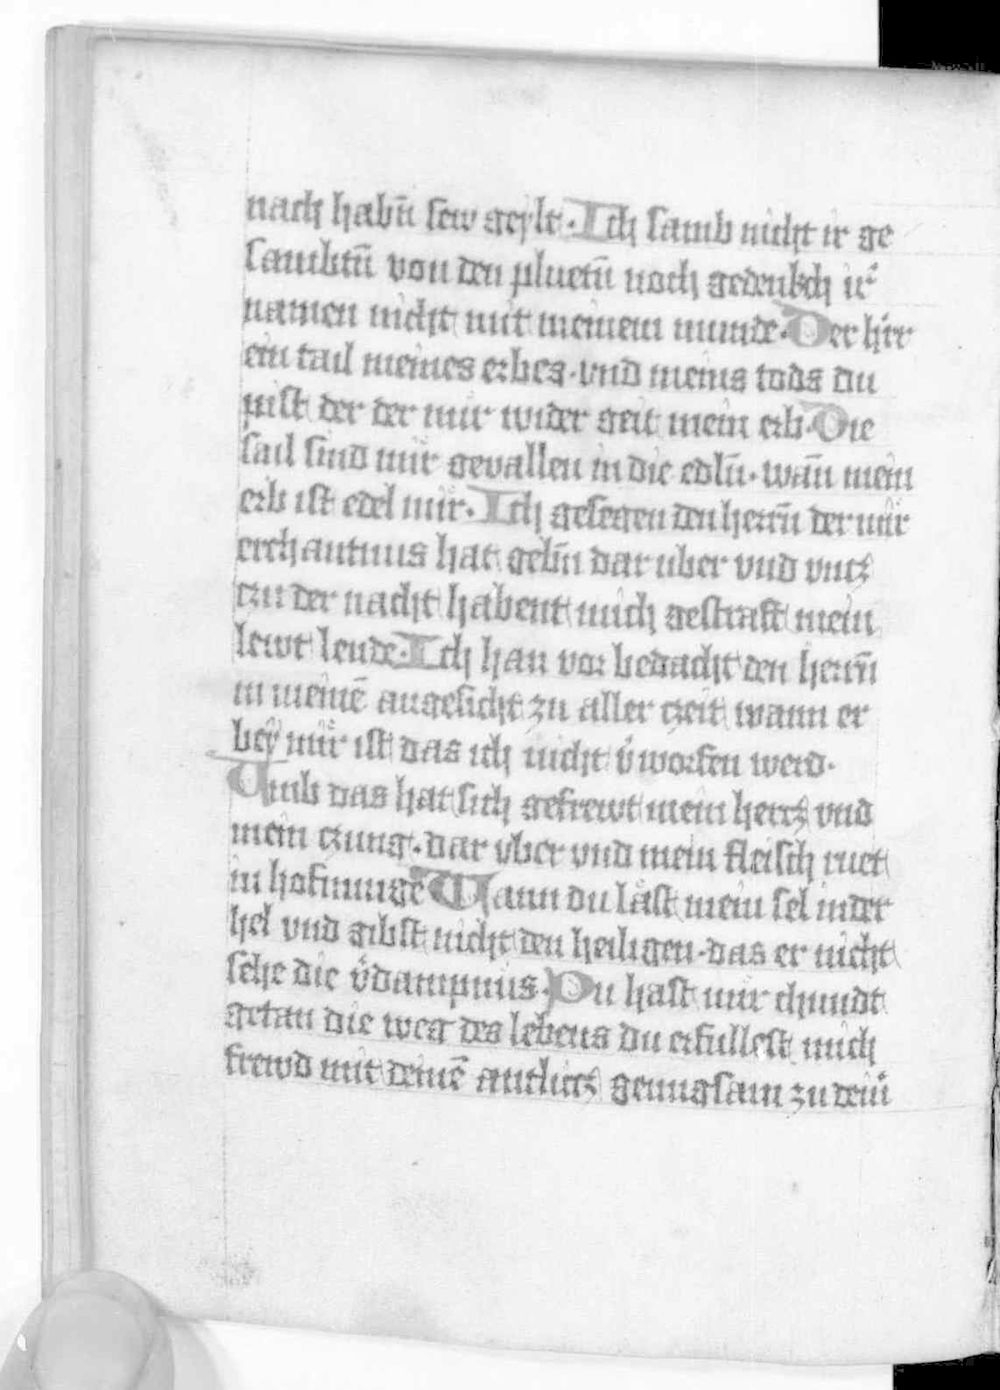 nach habn̄ sew geylt. Ich samb nicht ir ge
sambtn̄ von den pluetn̄ noch gedenkch ir
namen nicht mit meinem munde. Der herr
ein tail meines erbes. vnd meins tods du
pist der der mir wider geit mein erb. Die
sail sind mir gevallen in die edln̄. wan̄ mein
erb ist edel mir. Ich gesegen den herrn̄ der mir
erchantnus hat gebn̄ dar uber vnd vntz
czu der nacht habent mich gestrafft mein
lewt lende. Ich han vor bedacht den herrn̄
in meinē angesicht zu aller czeit wann er
bey mir ist das ich nicht v̄worfen werd.
Umb das hat sich gefrewt mein hercz vnd
mein czung. dar vber vnd mein fleisch ruet
in hofnunge Wann du låst mein sel in der
hel vnd gibst nicht den heiligen. das er nicht
sehe die v̄dampnus. Du hast mir chundt
getan die weg des lebens du erfullest mich
frewd mit deinē antlicz genugsam zu dein̄